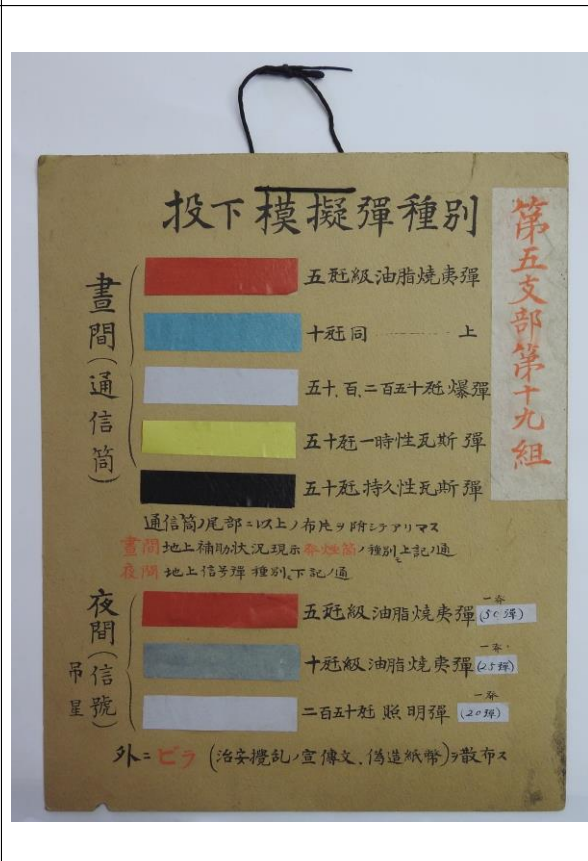 投下模擬彈種別
第五支部第十九組
晝間(通信筒)
五瓩級油脂燒夷彈
十瓩同………上
五十、百、二百五十瓩爆彈
五十瓩一時性瓦斯彈
五十瓩持久性瓦斯彈
通信筒ノ尾部ニハ以上ノ布片ヲ附シテアリマス
晝間地上補助状況現示發煙筒ノ種別ハ上記ノ通
夜間地上信号彈種別ハ下記ノ通
夜間(信號)
吊星
五瓩級油脂燒夷彈
一本(50彈)
十瓩級油脂燒夷彈
一本(25彈)
二百五十瓩照明彈
一本(20彈)
外ニビラ(治安攪乱ノ宣傳文、偽造紙幣)ヲ散布ス